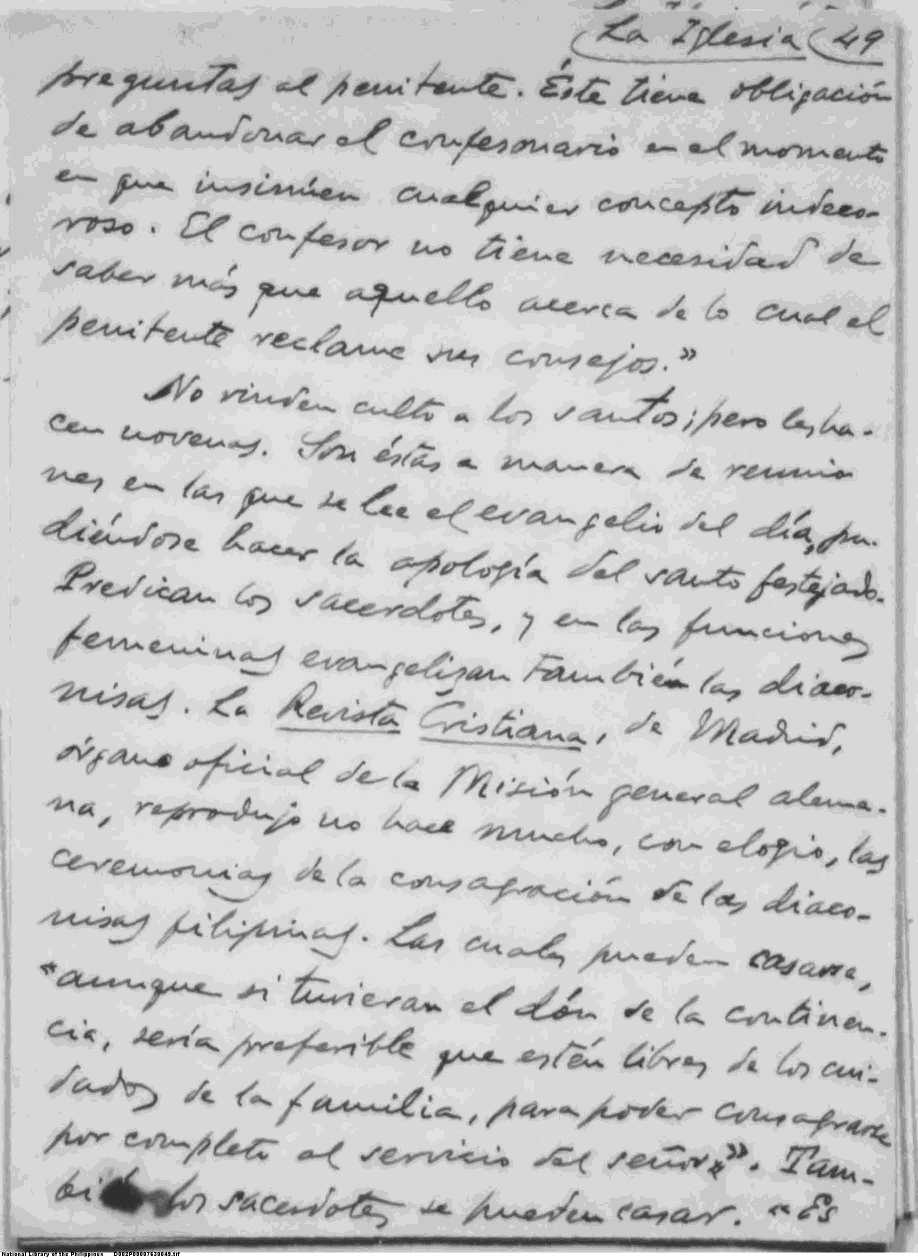 La Iglesia (49
preguntas al penitente. Éste tiene obligación
de abandonar el confesonario en el momento
en que insinúen cualquier concepto indeco-
roso. El confesor no tiene necesidad de
saber más que aquello acerca de lo cual el
penitente reclame sus consejos.”
No rinden culto a los santos; pero les ha-
cen novenas. Son éstas a manera de reunio
nes en las que se lee el evangelio del día, pu-
diéndose hacer la apología del santo festejado.
Predican los sacerdotes, y en las funciones
femeninas evangelizan también las diaco-
nisas. La Revista Cristiana, de Madrid,
órgano oficial de la Misión general alema-
na, reprodujo no hace mucho, con elogio, las
ceremonias de la consagración de las diaco-
nisas filipinas. Las cuales pueden casarse,
“aunque si tuvieran el dón de la continen-
cia, sería preferible que estén libres de los cui-
dados de la familia, para poder consagrarse
por completo al servicio del señor”. Tam-
bién los sacerdotes se pueden casar. “Es
National Library of the Philippines D002P00007630049.tif